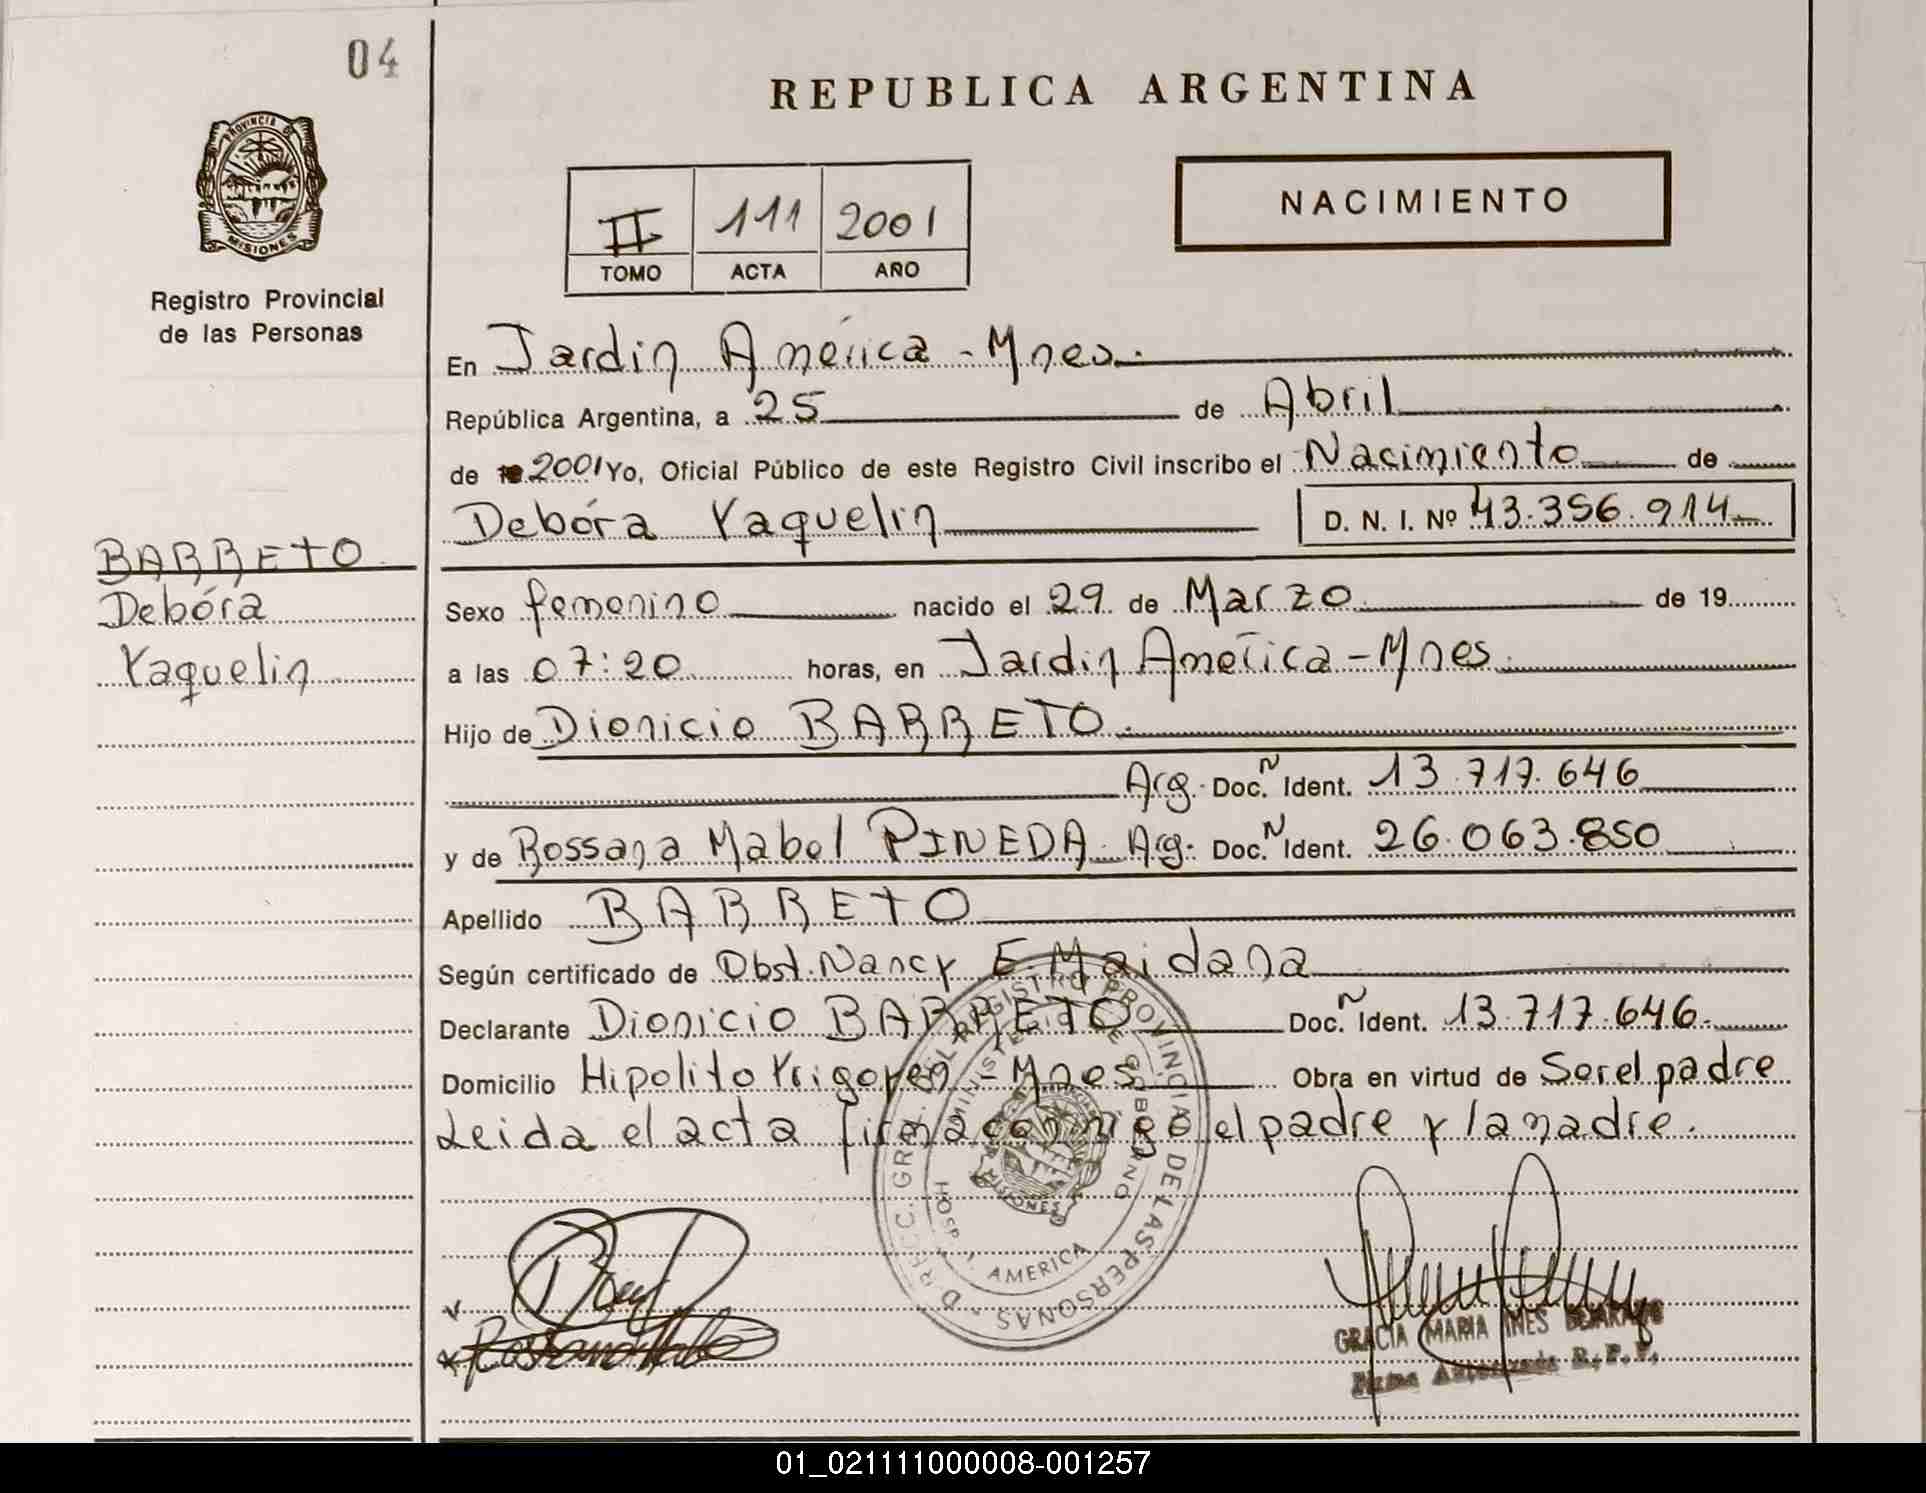 04
REPUBLICA ARGENTINA
PROVINCIA DE
MISIONES
Registro Provincial
de las Personas
II 111 2001
TOMO ACTA AÑO
NACIMIENTO
En Jardin América - Mnes.
República Argentina, a 25 de Abril
de 2001 Yo, Oficial Público de este Registro Civil inscribo el Nacimiento de
Debóra Yaquelin D. N. I. Nº 43.356.914
BARRETO
Debóra
Yaquelin
Sexo femenino nacido el 29 de Marzo de 19
a las 07:20 horas, en Jardin América - Mnes.
Hijo de Dionicio BARRETO.
Arg. Doc. N Ident. 13.717.646
y de Rossana Mabel PINEDA. Arg. Doc. N Ident. 26.063.850
Apellido BARRETO
Según certificado de Obst. Nancy E. Maidana
Declarante Dionicio BARRETO Doc. N Ident. 13.717.646.
Domicilio Hipolito Yrigoyen - Mnes Obra en virtud de Ser el padre
Leida el acta firma conmigo el padre y la madre.
DIRECC. GRAL. DEL REGISTRO PROVINCIAL DE LAS PERSONAS
MINISTERIO DE GOBIERNO
HOSP. J. AMERICA
MISIONES
GRACIA MARIA INES
Firma Autorizada R.P.P.
01_021111000008-001257